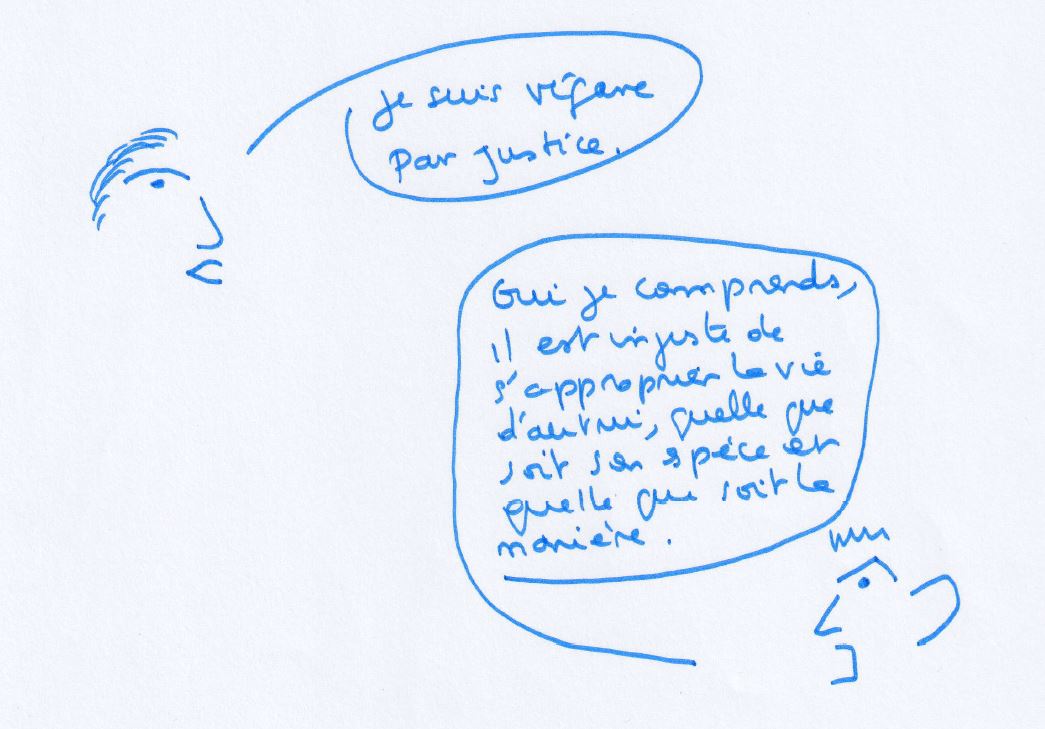 Je suis végane
par justice.
Oui je comprends,
il est injuste de
s'approprier la vie
d'autrui, quelle que
soit son espèce et
quelle que soit la
manière.